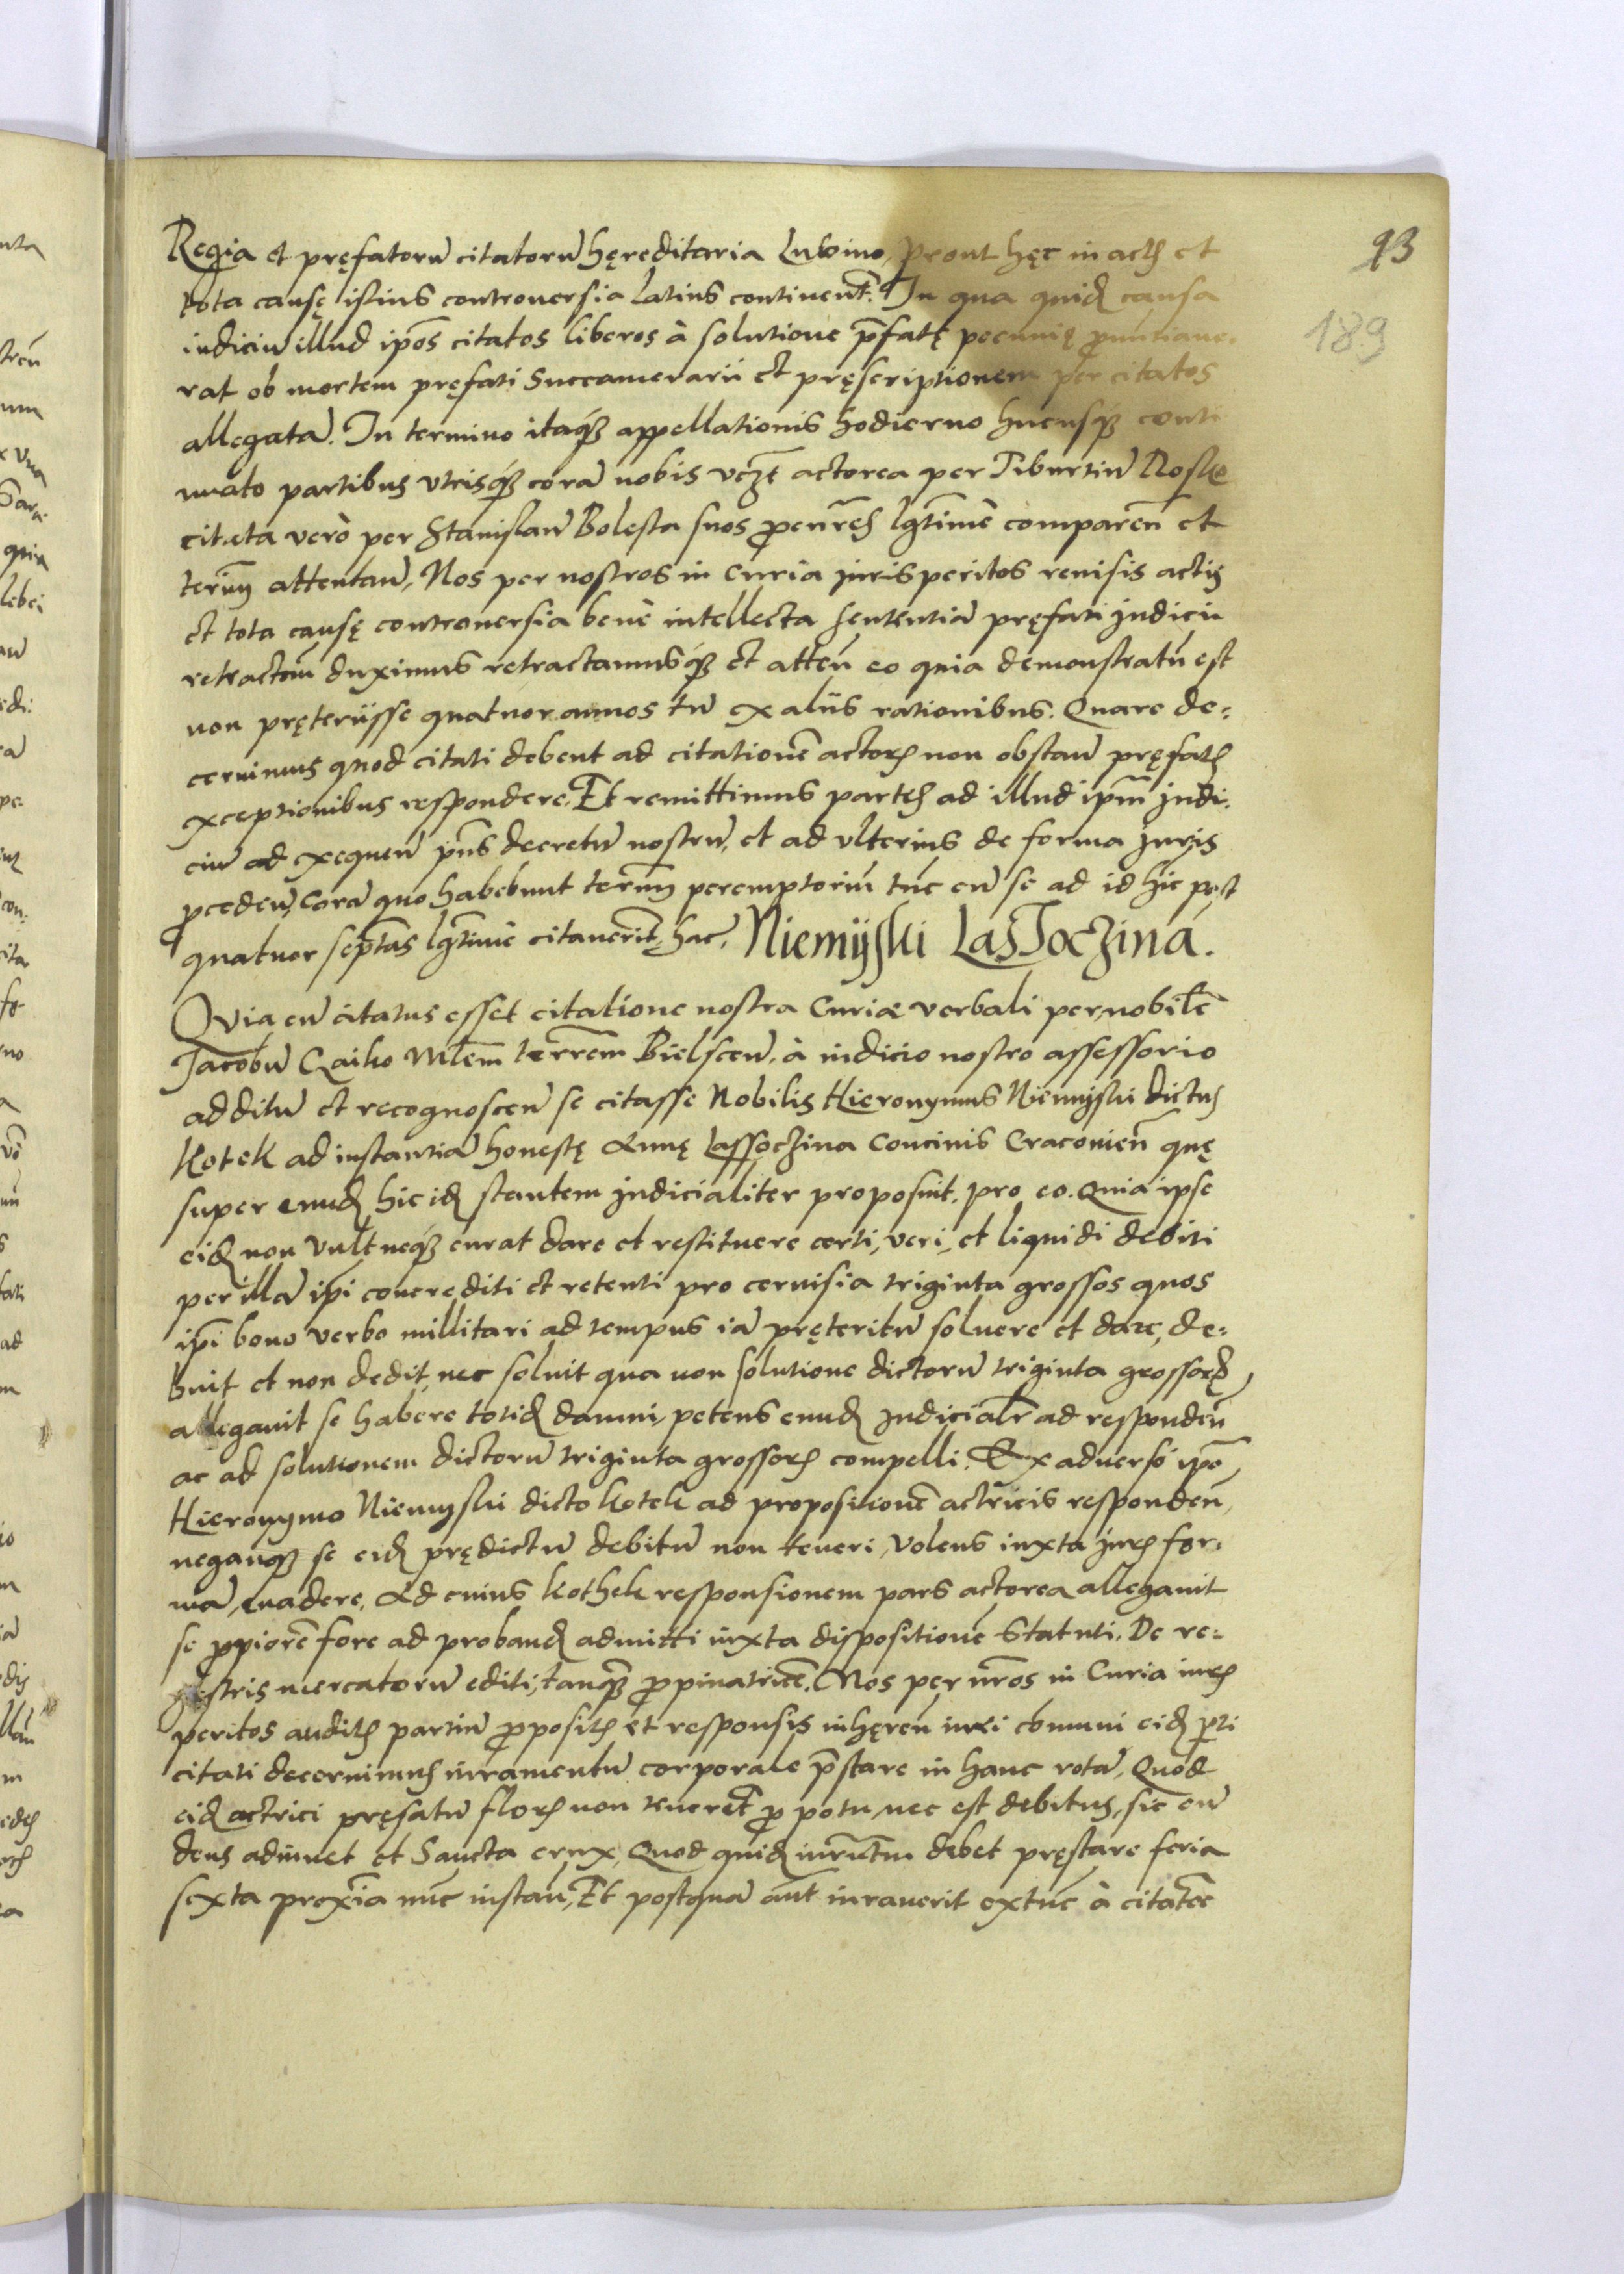 93
189
Regia et pręfatorũ citatorũ hęreditaria Luboino, prout hęc in actis et
tota causę istius controuersia latius continent̃. In qua quid̃ causa
iudiciũ illud ip̃os citatos liberos à solutione p̃fatę pecunię p̃nuntiaue-
rat ob mortem pręfati Succamerarii et pręscriptionem per citatos
allegatã. In termino itaq́ꝫ appellationis hodierno hucusq́ꝫ conti
nuato partibus vtrisq́ꝫ corã nobis vcꝫt actorea per Tiburtiũ
citata verò per Stanislaũ Bolesta suos p̃cur̃es lg̃time comparen̄ et
term̃ attentan̄, Nos per nostros in Curia iuris peritos reuisis actis
et tota causę controuersia bene intellecta sententiã pręfati Iudicii
retractan̄ duximus retractamusq́ꝫ et atten̄ eo quia demonstratũ est
non pręteriisse quatuor annos tũ ex aliis rationibus. Quare de-
cernimus quod citati debent ad citationē actoris non obstan̄ pręfatis
exceptionibus respondere, Et remittimus partes ad illud ip̃m Iudi-
ciũ ad exequen̄ p̃ns decretũ nostrũ, et ad vlterius de forma Iuris
p̃ceden̄, Corã quo habebunt term̃ peremptoriũ tũc cũ se ad id hic post
quatuor sept̃as lg̃time citauerit, hac. Niemijski Lassoczina.
Quia cũ citatus esset citatione nostra Curiæ verbali per nobilē
Jacobũ Czaiko Mlẽm terrẽm Bielscen̄, à iudicio nostro assessorio
additũ et recognoscen̄ se citasse Nobilis Hieronymus Niemijski dictus
Kotek ad instantiã honestę Annę Lassoczina Concinis Cracouien̄ quę
super eund̃ hic id̃ stantem Iudicialiter proposuit. pro eo. Quia ipse
eid̃ non vult neq́ꝫ curat dare et restituere certi, veri, et liquidi debiti
per illã ip̃i concrediti et retenti pro ceruisia triginta grossos quos
ip̃i bono verbo millitari ad tempus iã pręteritũ soluere et dare, de-
buit et non dedit, nec soluit qua non solutione dictorũ triginta grossorũ,
allegauit se habere totid̃ damni, petens eund̃ Iudicialr̃ ad responden̄
ac ad solutionem dictorũ triginta grossorũ compelli. Ex aduerso ip̃o
Hieronymo Niemyski dicto Kotek ad propositionē actricis responden̄,
neganq́ꝫ se eid̃ prędictũ debitũ non teneri, Volens iuxta Juris for-
mã, euadere, Ad cuius Kothek responsionem pars actorea allegauit
se p̃piorē fore ad proband̃ admitti iuxta dispositionē Statuti. De re-
gistris mercatorũ editi, tanq̃ꝫ p̃pinatricē. Nos per nr̃os in Curia iuris
peritos auditis partiũ p̃positis et responsis inhęren̄ iuri cõmuni eid̃ p̃ti
citati decernimus iuramentũ corporale p̃stare in hanc rotã, Quod
eid̃ actrici pręfatũ floris non teneret̃ p̃ potu, nec est debitus, sic eũ
deus adiuuet et Sancta crux, Quod quid̃ iurm̃tm debet pręstare feria
sexta proxĩa nũc instan̄, Et postquã aũt iurauerit extũc à citatõe